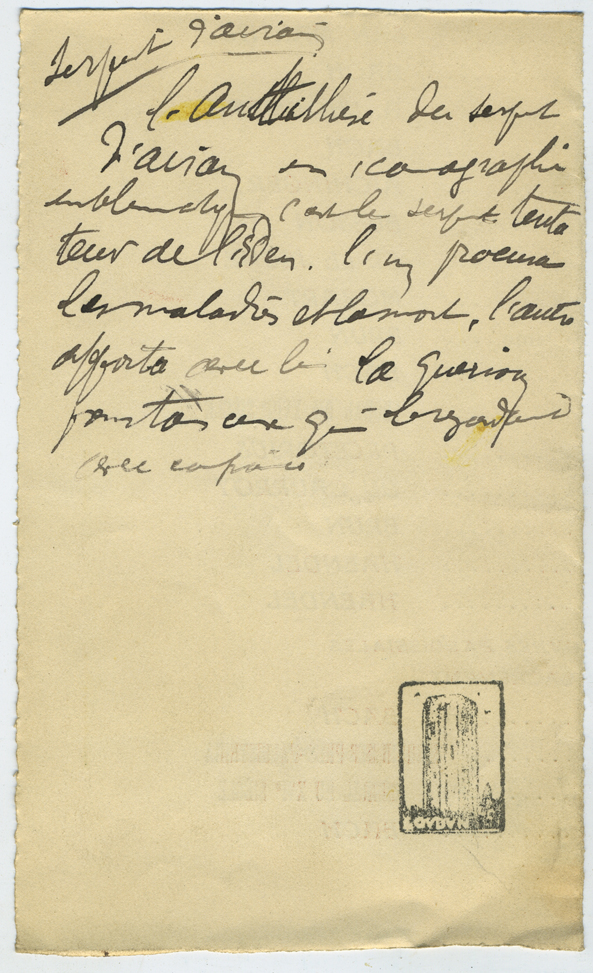 Serpent d'airain
L'Antithèse du serpent
d'airain en iconographie
c'est le serpent tenta
teur de l'Eden. l'un procura
les maladies et la mort, l'autre
apporta avec lui la guerison
pour tous ceux qui le regardent
avec